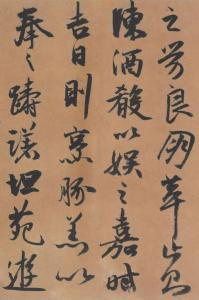 之勞良朋萃止則
陳酒殽以娛之嘉時
吉日則烹豚羔以
奉之躊躇畦苑遊